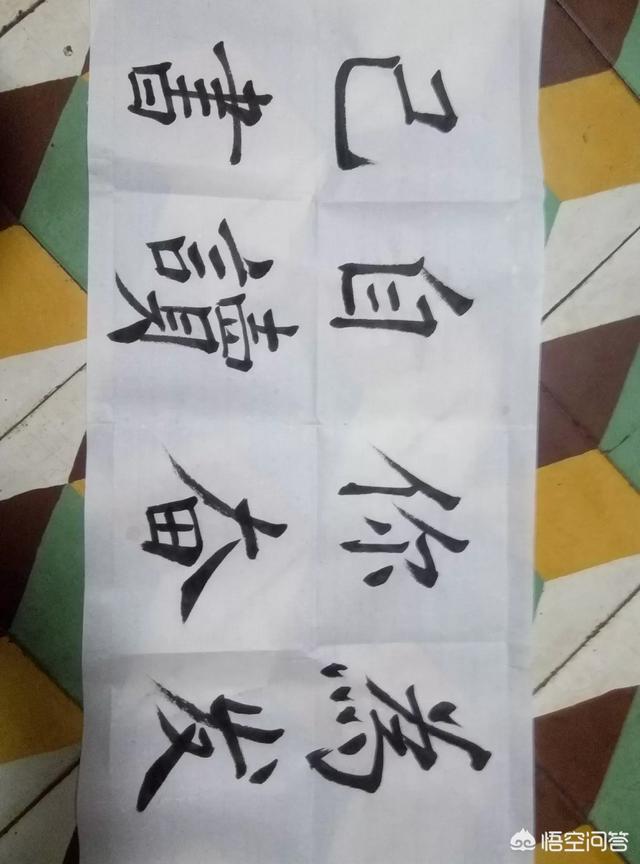 為你自己
发奋讀書
悟空问答